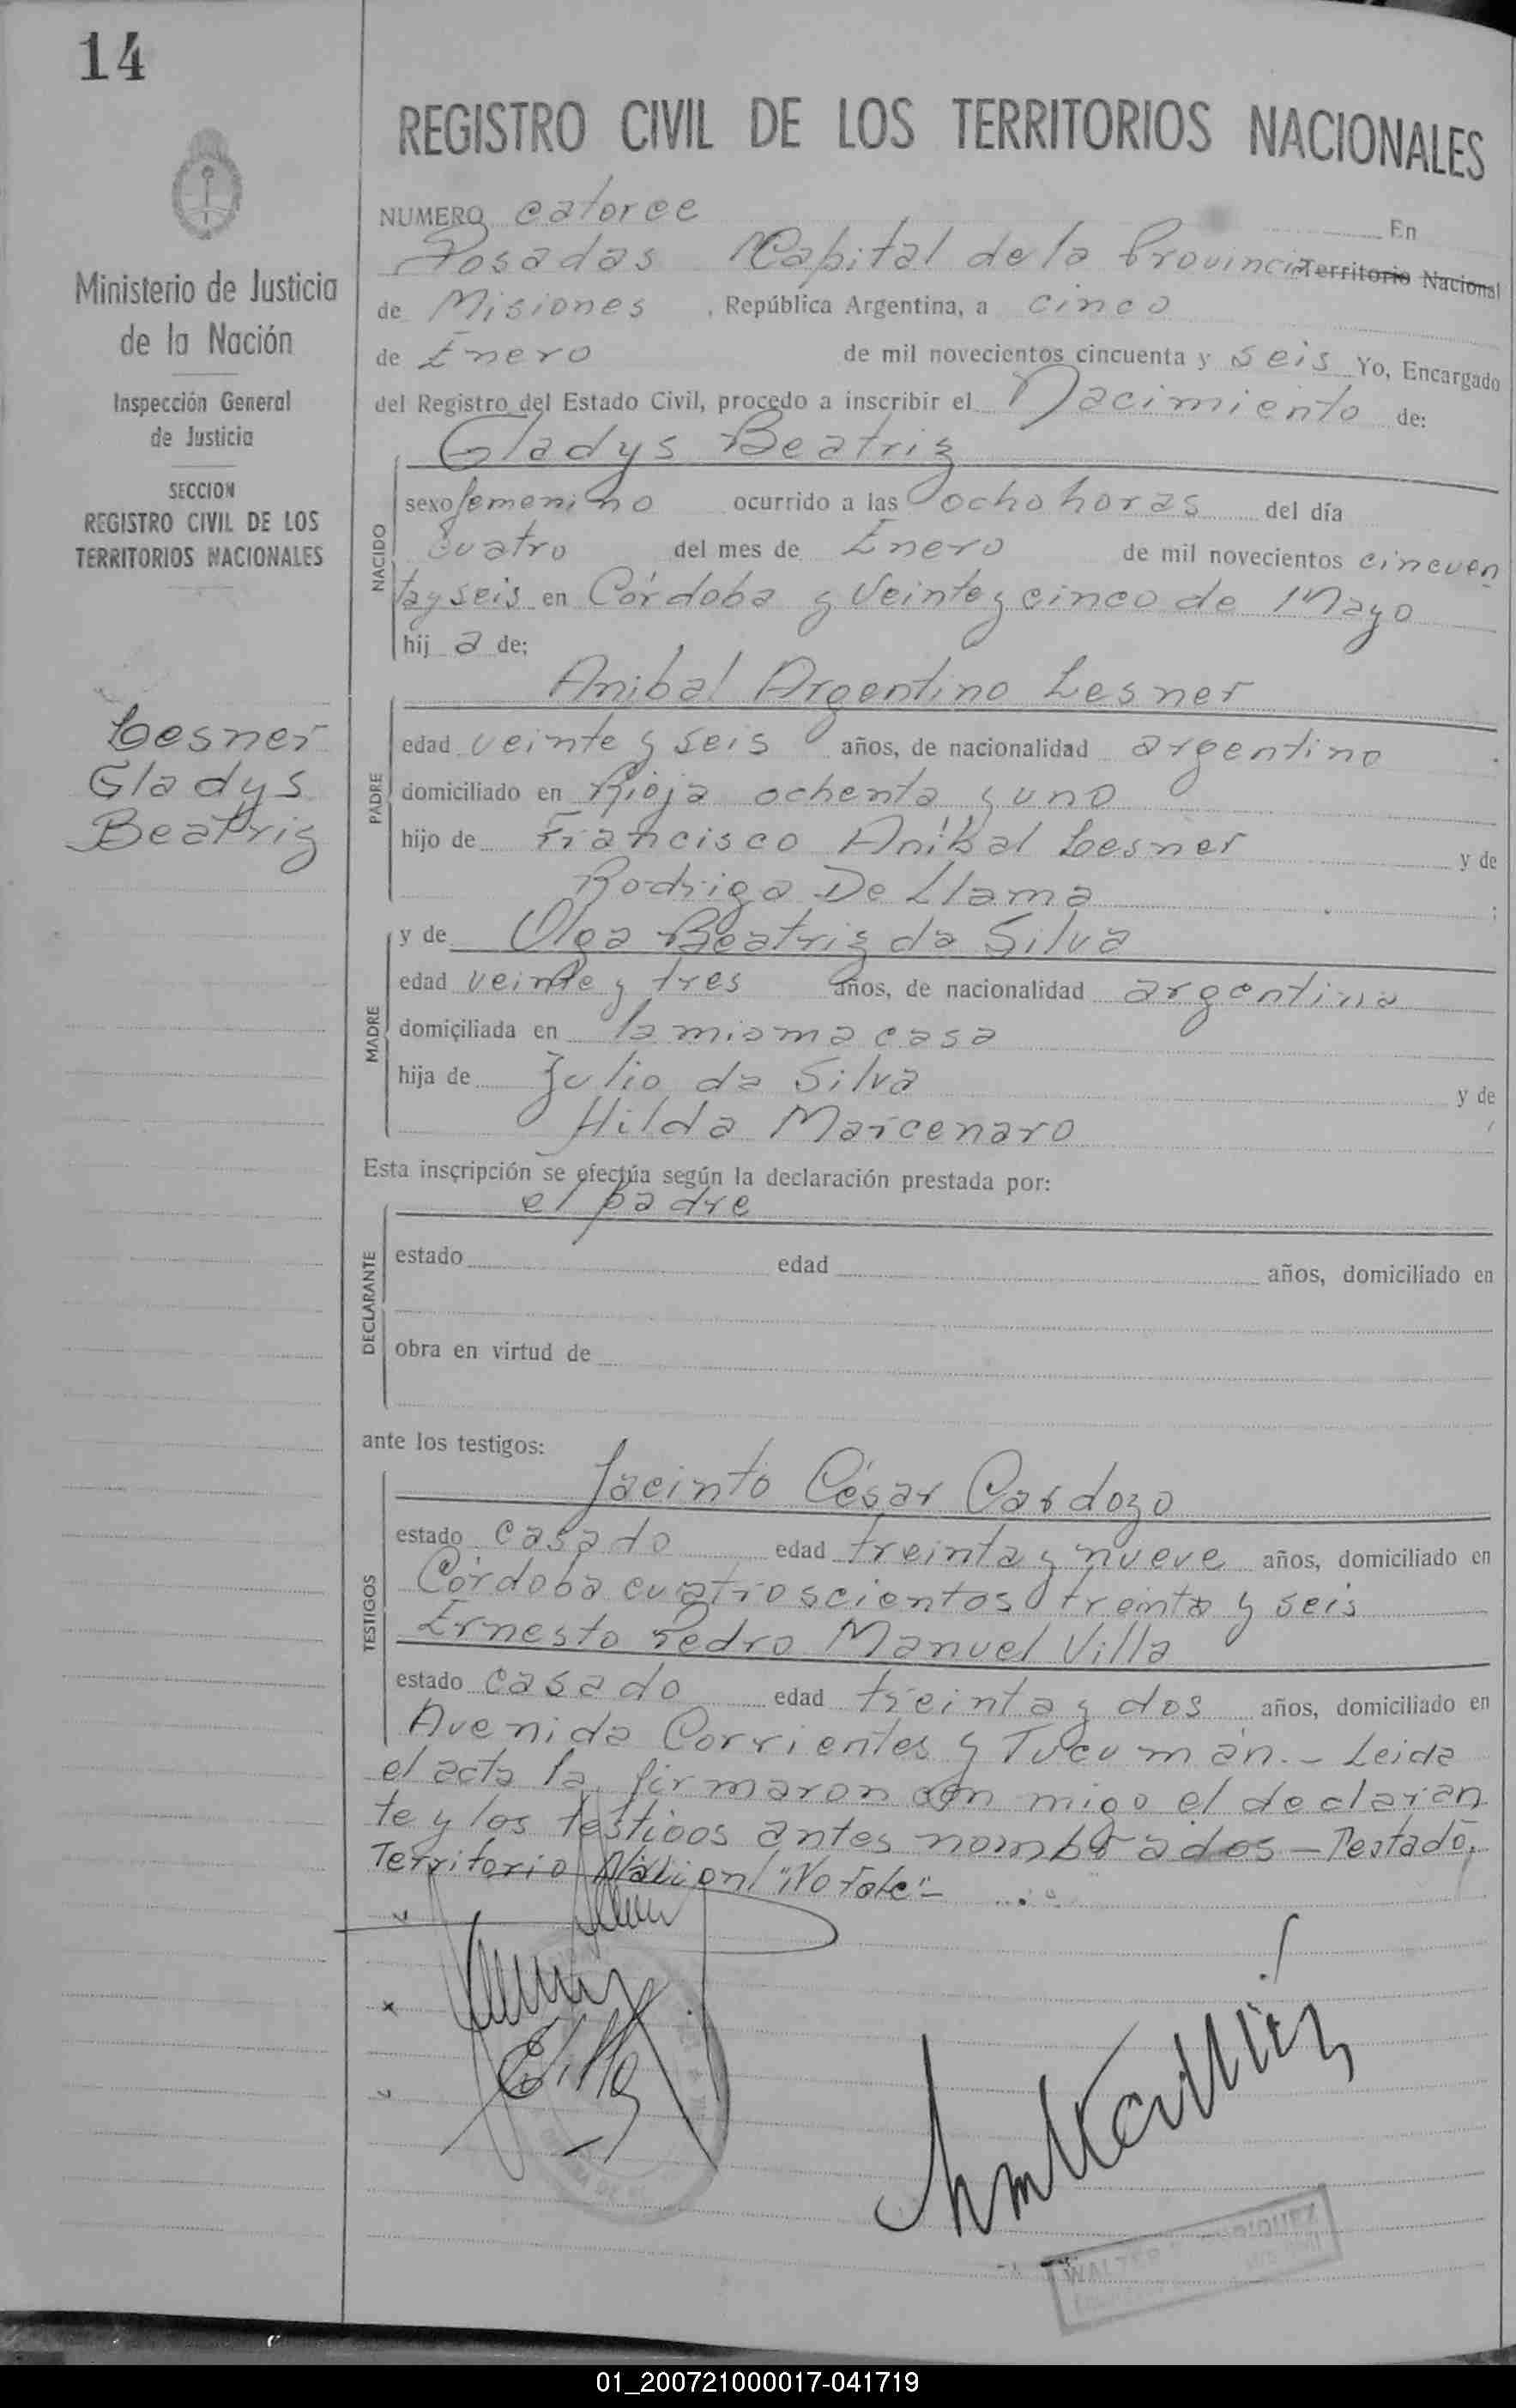 14
REGISTRO CIVIL DE LOS TERRITORIOS NACIONALES
Ministerio de Justicia
de la Nación
Inspección General
de Justicia
SECCION
REGISTRO CIVIL DE LOS
TERRITORIOS NACIONALES
Lesner
Gladys
Beatriz
NUMERO catorce En
Posadas Capital de la Provincia Territorio Nacional
de Misiones, República Argentina, a cinco
de Enero de mil novecientos cincuenta y seis Yo, Encargado
del Registro del Estado Civil, procedo a inscribir el Nacimiento de:
Gladys Beatriz
NACIDO
sexo femenino ocurrido a las ocho horas del día
cuatro del mes de Enero de mil novecientos cincuen
ta y seis en Córdoba y Veinte y cinco de Mayo
hij a de;
Anibal Argentino Lesner
PADRE
edad veinte y seis años, de nacionalidad argentino
domiciliado en Rioja ochenta y uno
hijo de Francisco Anibal Lesner y de
Rodriga De Llama
MADRE
y de Olga Beatriz da Silva
edad veinte y tres años, de nacionalidad argentina
domiciliada en la misma casa
hija de Julio da Silva y de
Hilda Marcenaro
Esta inscripción se efectúa según la declaración prestada por:
el padre
DECLARANTE
estado edad años, domiciliado en
obra en virtud de
ante los testigos:
Jacinto César Cardozo
TESTIGOS
estado casado edad treinta y nueve años, domiciliado en
Córdoba cuatroscientos treinta y seis
Ernesto Pedro Manuel Villa
estado casado edad treinta y dos años, domiciliado en
Avenida Corrientes y Tucumán.- Leida
el acta la firmaron con migo el declaran
te y los testigos antes nombrados - Testado,
Territorio "No Vale"-
EVilla
WALTER
01_200721000017-041719